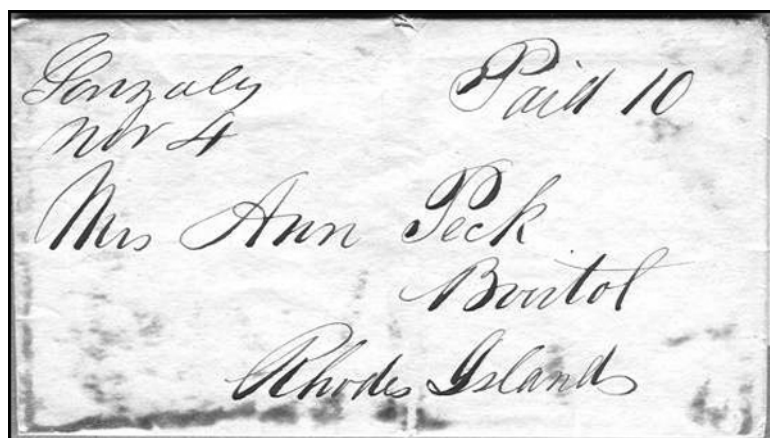 Gonzales Paid 10
Nov 4
Mrs Ann Peck
Bristol
Rhodes Island